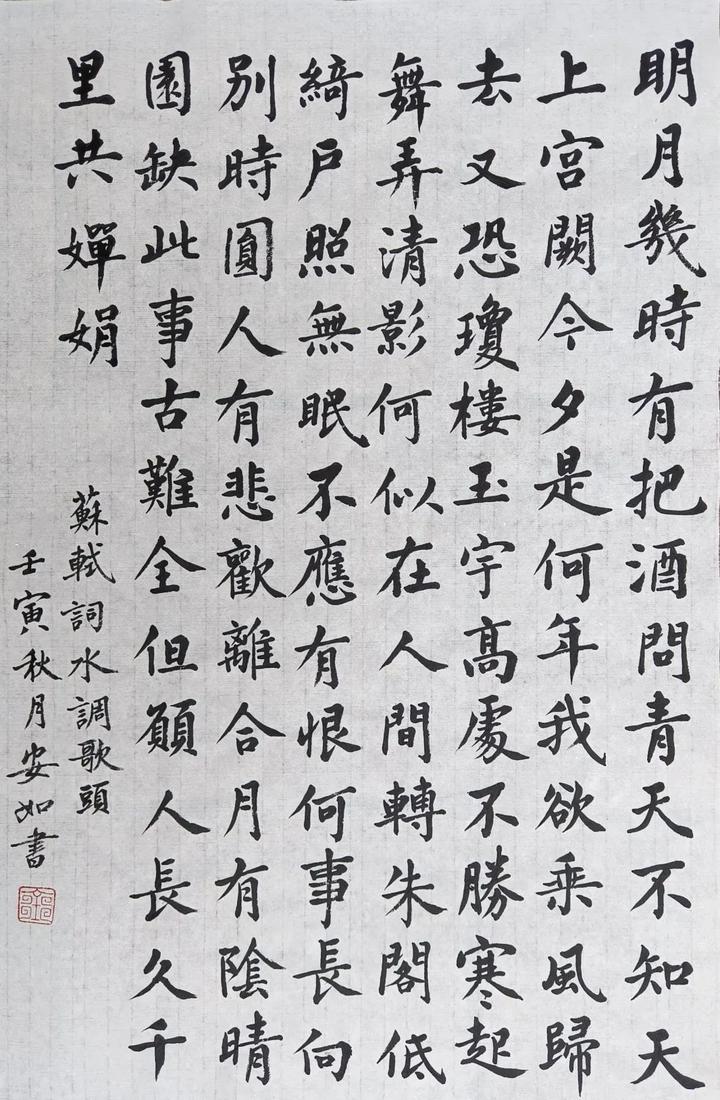 明月幾時有把酒問青天不知天
上宮闕今夕是何年我欲乘風歸
去又恐瓊樓玉宇髙處不勝寒起
舞弄清影何似在人間轉朱閣低
綺户照無眠不應有恨何事長向
別時圓人有悲歡離合月有陰晴
園缺此事古難全但願人長久千
里共嬋娟
蘇軾詞水調歌頭
壬寅秋月安如書